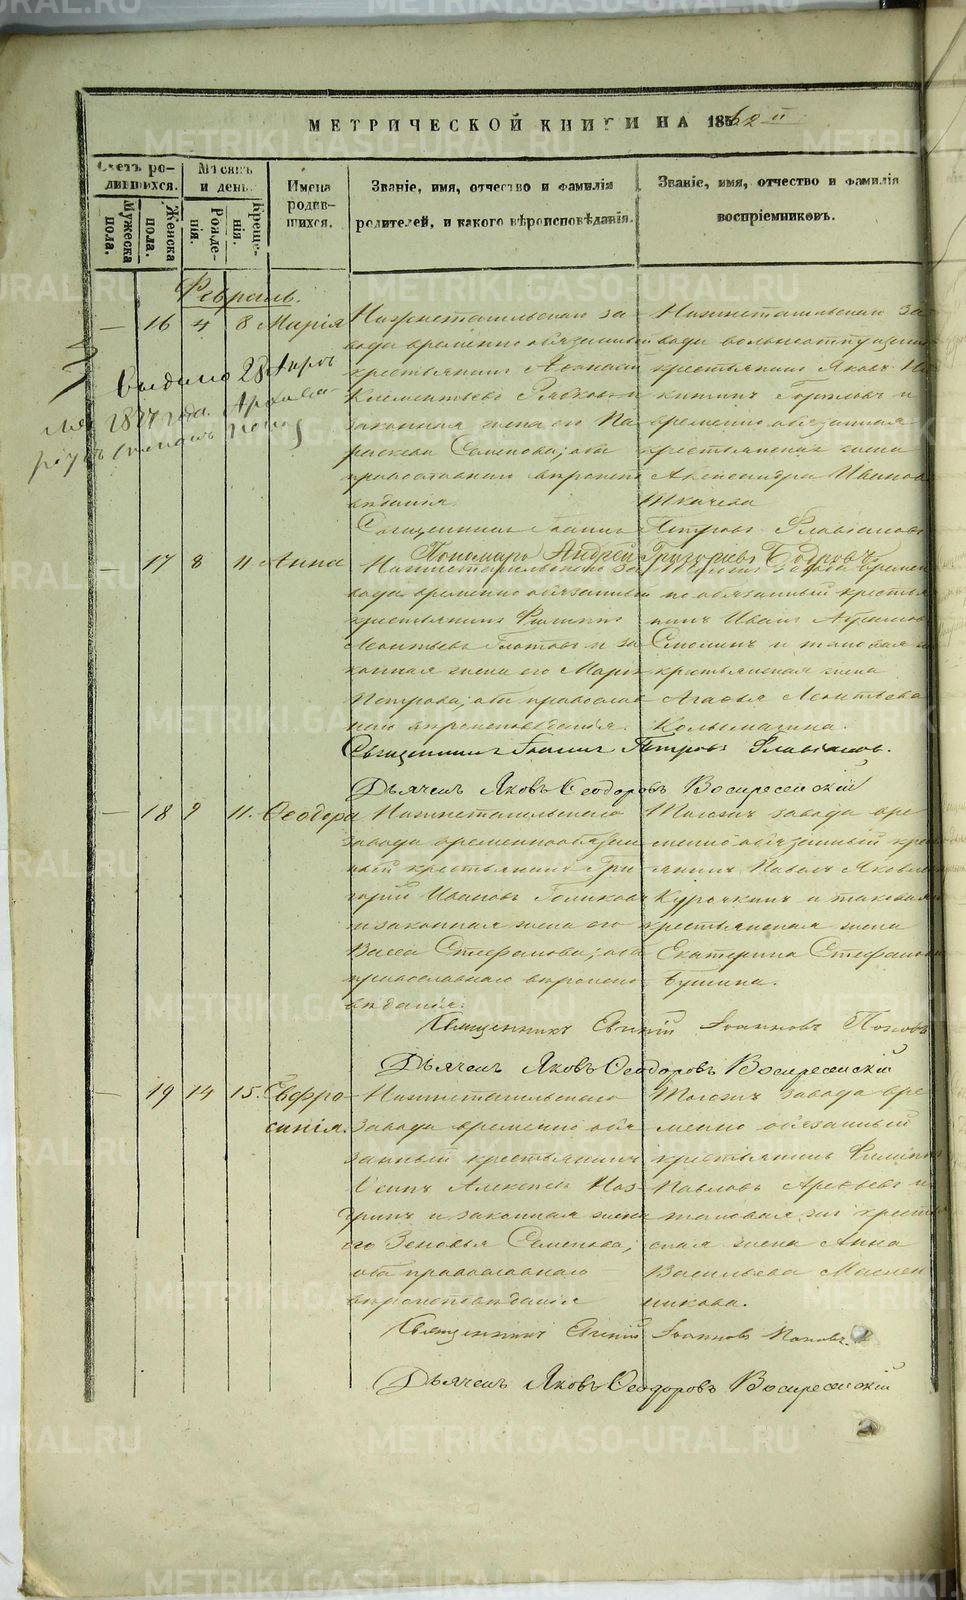 МЕТРИЧЕСКОЙ КНИГИ НА 1862 й
Счетъ ро-
дившихся.
Мужеска
пола.
Женска
пола.
Мѣсяцъ
и день.
Рожде-
нія.
Креще-
нія.
Имена
родив-
шихся.
Званіе, имя, отчество и фамилія
родителей, и какого вѣроисповѣданія.
Званіе, имя, отчество и фамилія
воспріемниковъ.
Февраль.
— 16 4 8 Марія
Нижнетагильскаго за
вода временно обязанный
крестьянинъ
Климентьевъ
законная жена его Па
раскева Семенова; оба
православнаго вѣроиспо
вѣданія
Нижнетагильскаго за
вода
крестьянинъ Яковъ Ни
китинъ и
временно обязанная
крестьянская жена
Александра Иванова
Ткачева
Выдано 28 Апрѣ
ля года
Священникъ Іоаннъ Петровъ Флавіановъ
Пономарь Андрей Григорьевъ Бобровъ
— 17 8 11 Анна
Нижнетагильскаго за
вода временно обязанный
крестьянинъ Филиппъ
Леонтьевъ и за
конная жена его Марья
Петрова; оба православ
наго вѣроисповѣданія.
завода времен
но обязанный крестья
нинъ Иванъ
и таковая
крестьянская жена
Агафья Леонтьева
Колымагина.
Священникъ Іоаннъ Петровъ Флавіановъ.
Дьячекъ Яковъ Ѳеодоровъ Воскресенскій
— 18 9 11. Ѳеодора
Нижнетагильскаго
завода временнообязан
ный крестьянинъ Гри
горій Ивановъ Голиковъ
и законная жена его
Васса Стефанова; оба
православнаго вѣроиспо
вѣданія.
Тогожъ завода вре
менно обязанный крес
янинъ Павелъ Яковлевъ
Курочкинъ и таковая
крестьянская жена
Екатерина Стефанова
Священникъ Евгеній Іоанновъ Поповъ
Дьячекъ Яковъ Ѳеодоровъ Воскресенскій
— 19 14 15. Евфро-
синія.
Нижнетагильскаго
завода временно обя
занный крестьянинъ
Осипъ Алексѣевъ
и законная жена
его Зеновья Семенова;
оба православнаго
вѣроисповѣданія
Тогожъ завода вре
менно обязанный
крестьянинъ Филиппъ
Павловъ Арефьевъ и
таковая жъ крестьян
ская жена Анна
Васильева Маслен
никова.
Священникъ Евгеній Іоанновъ Поповъ.
Дьячекъ Яковъ Ѳеодоровъ Воскресенскій
METRIKI.GASO-URAL.RU